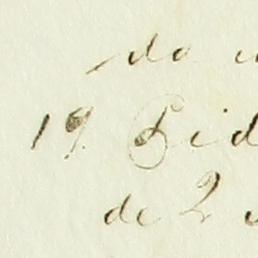 - do
19. Did
de 2